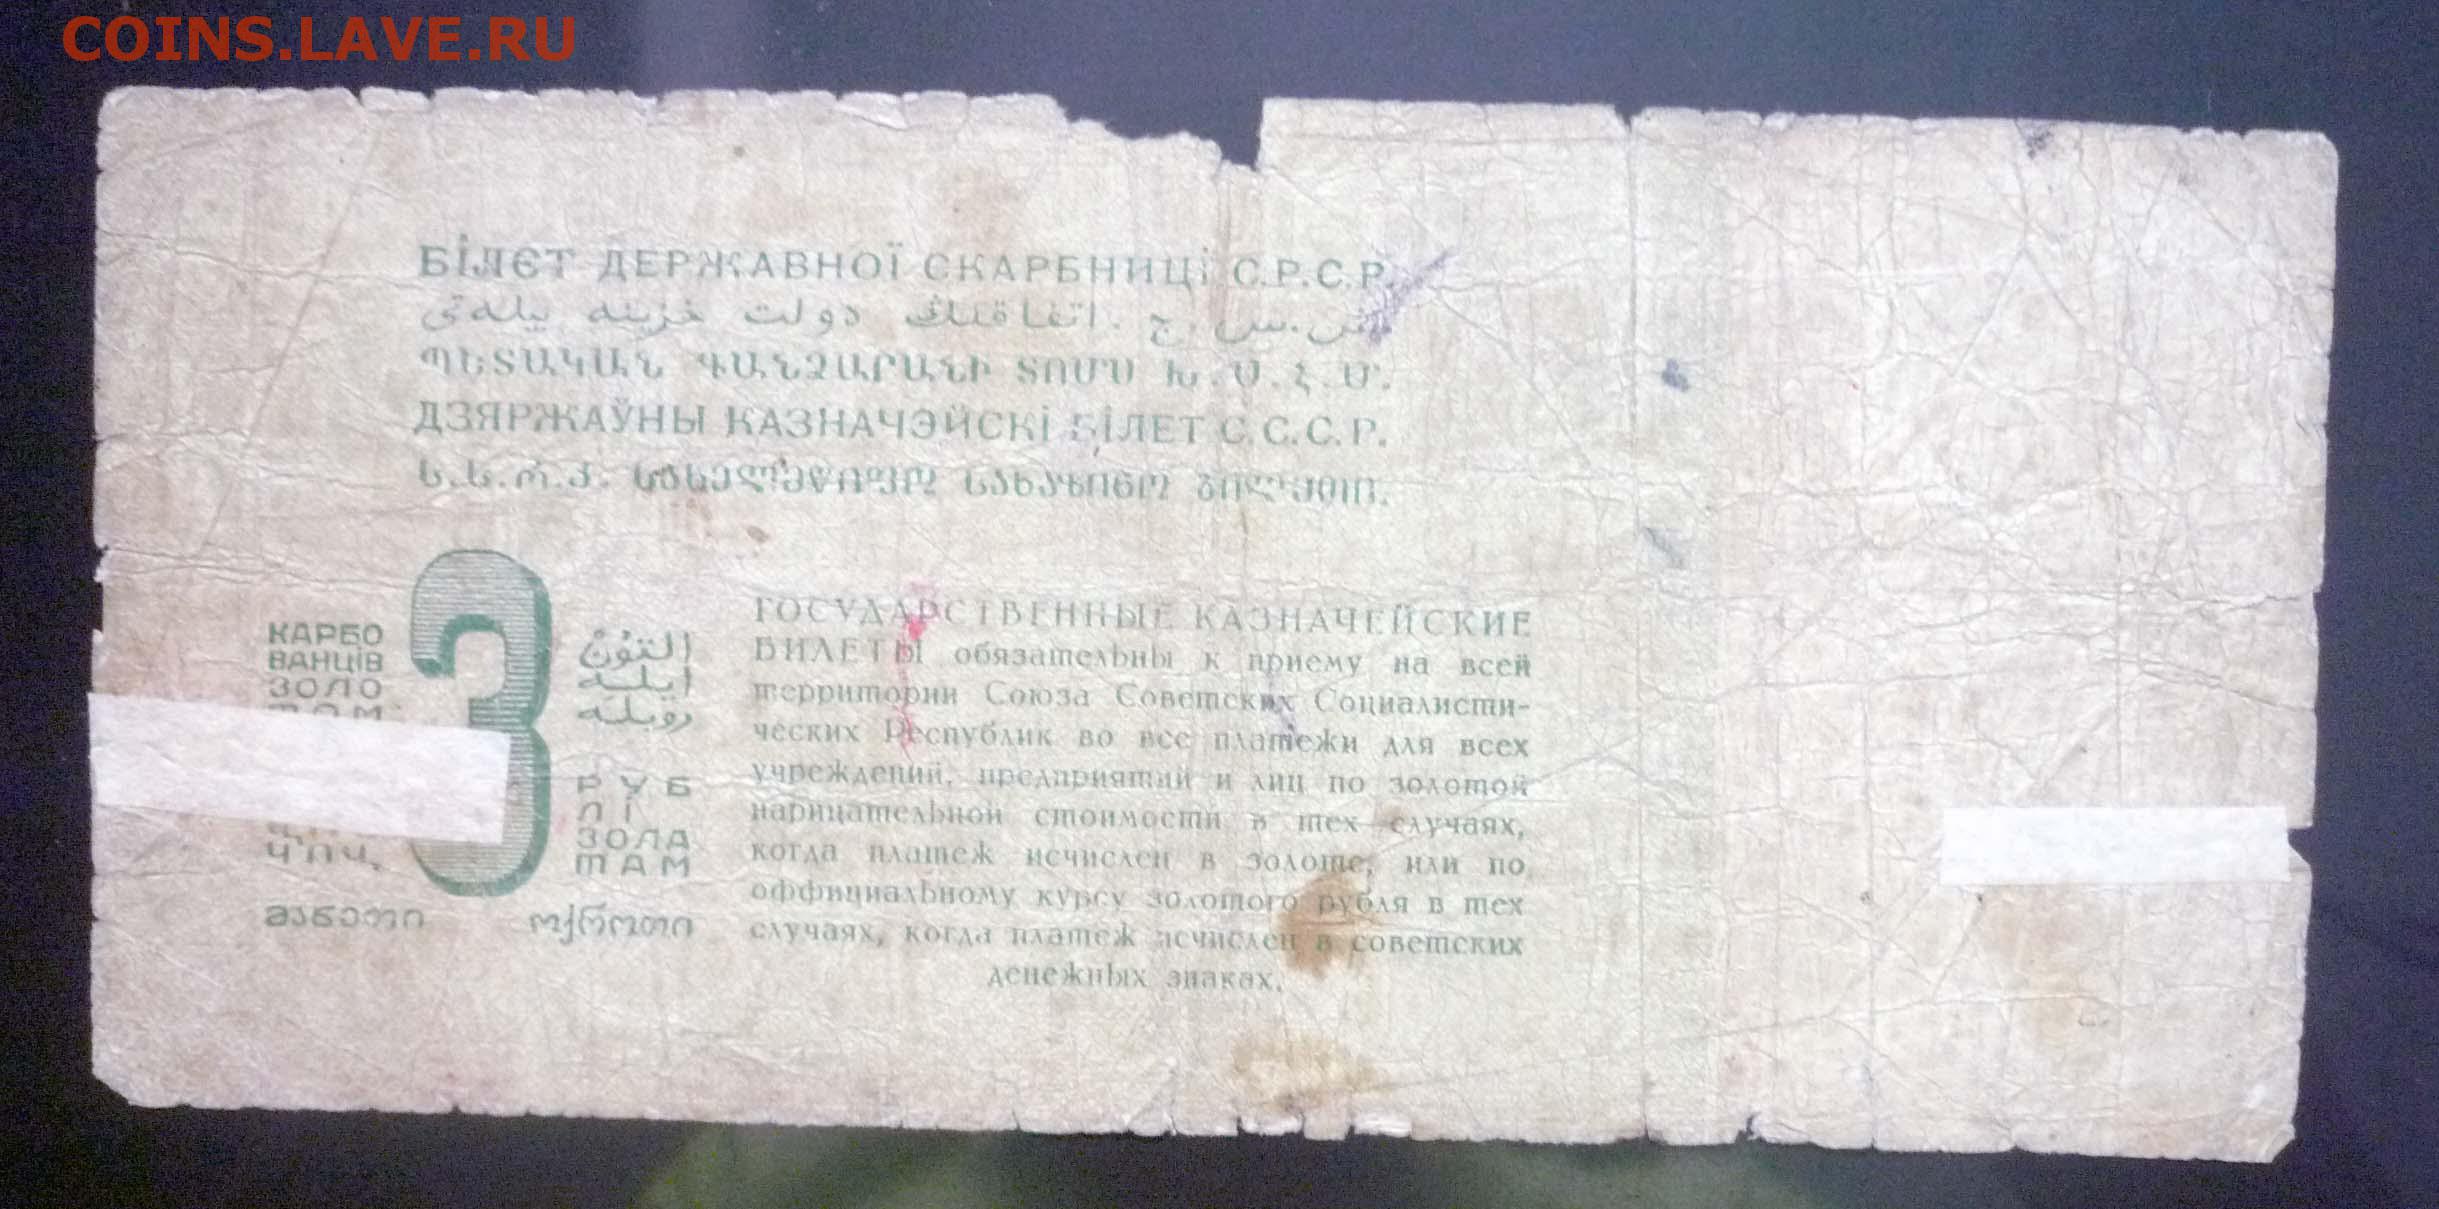 COINS.LAVE.RU
БІЛЄТ ДЕРЖАВНОЇ СКАРБНИЦІ С.Р.С.Р.
س.س. ج. اتفاقنڭ دولت خزينه بيله‌تى
ՊԵՏԱԿԱՆ ԳԱՆՁԱՐԱՆԻ ՏՈՄՍ Խ.Ս.Հ.Մ.
ДЗЯРЖАЎНЫ КАЗНАЧЭЙСКІ БІЛЕТ С.С.С.Р.
ს.ს.რ.კ. სახელმწიფო სახაზინო ბილეთი.
КАРБО
ВАНЦІВ
ЗОЛО
ТОМ
3
التون
ايله
روبله
РУБ
ЛІ
ЗОЛА
ТАМ
მანეთი ოქროთი
ГОСУДАРСТВЕННЫЕ КАЗНАЧЕЙСКИЕ
БИЛЕТЫ обязательны к приему на всей
территории Союза Советских Социалисти-
ческих Республик во все платежи для всех
учреждений, предприятий и лиц по золотой
нарицательной стоимости в тех случаях,
когда платеж исчислен в золоте, или по
оффициальному курсу золотого рубля в тех
случаях, когда платеж исчислен в советских
денежных знаках.